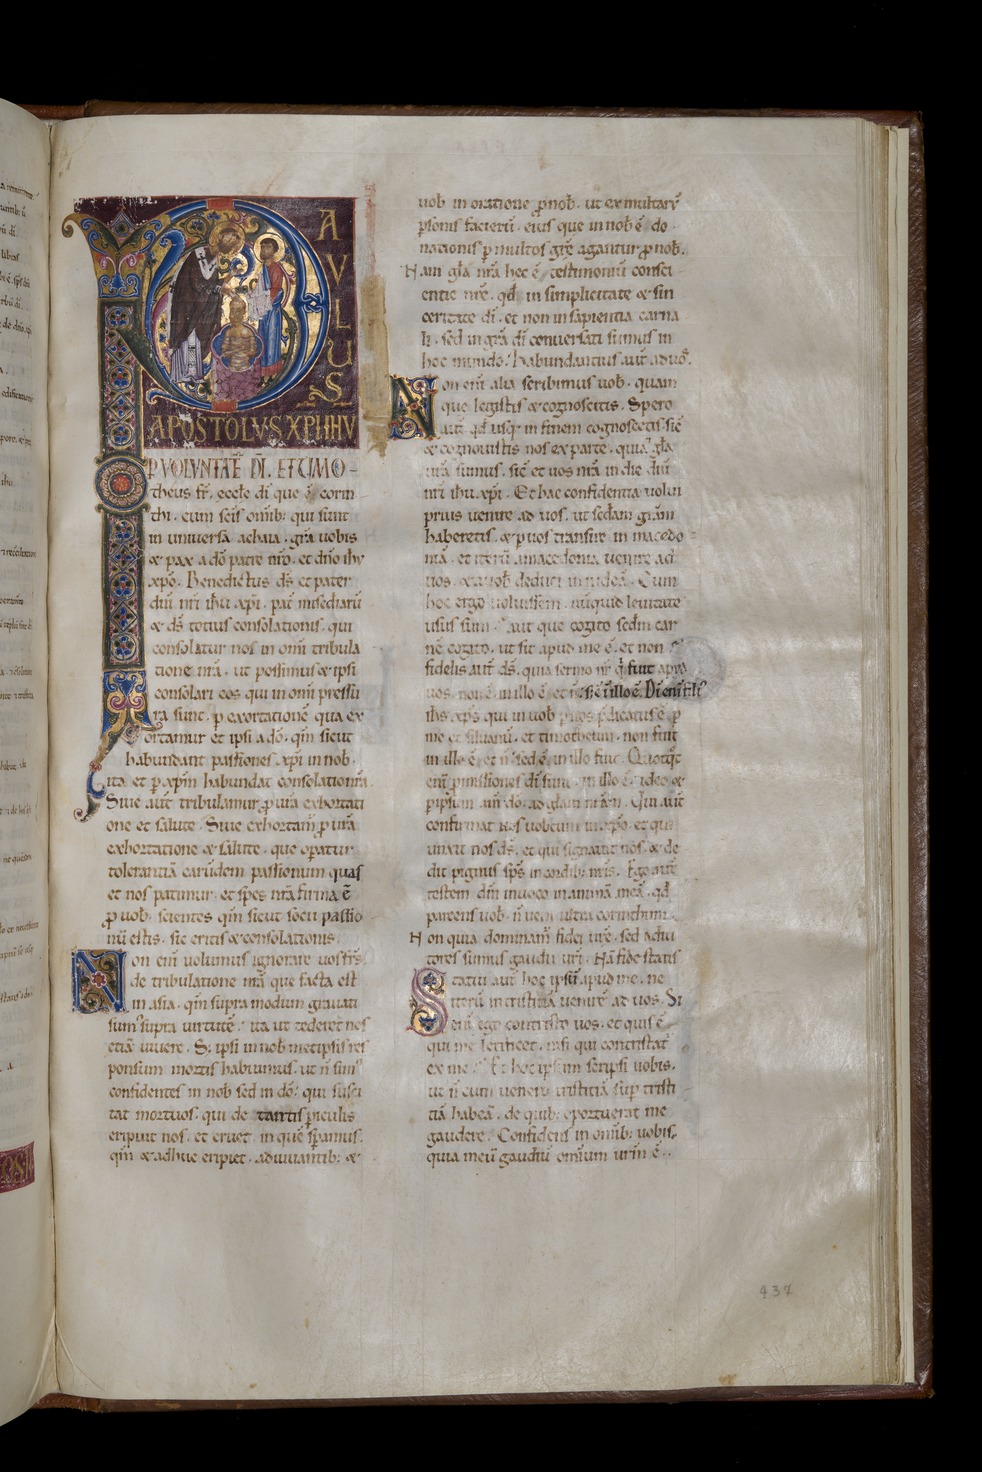 PAULUS
APOSTOLVS XPI IHV
P VOLVNTATĒ DĪ. ET TIMO-
theus fr̄. eccłe dī que ē corin
thi. cum sc̄is om̄ib; qui sunt
in universa achaia. gr̄a uobis
& pax a dō patre nr̄o. et dn̄o ihu
xp̄o. Benedictus d̄s et pater
dn̄i nr̄i ihū xp̄i. pat̄ mis̄ediarū
& d̄s totius consolationis. qui
consolatur nos in om̄i tribula
tione nr̄a. ut possimus & ipsi
consolari eos qui in om̄i pressu
ra sunt. p exortationē qua ex
ortamur et ipsi a dō. qm̄ sicut
habundant passiones xp̄i in nob̄.
ita et p xp̄m habundat consolatio nr̄a.
Siue aut̄ tribulamur p ur̄a exhortati
one et salute. Siue exhortam̄ p ur̄a
exhortatione & salute. que opatur
tolerantiā earūdem passionum quas
et nos patimur. et spes nr̄a firma ē
p uob̄. scientes qm̄ sicut socii passio
nū estis. sic eritis & consolationis.
Non eni uolumus ignorare uos fr̄s.
de tribulatione nr̄a que facta est
in asia. qm̄ supra modum grauati
sum' supra uirtutē. ita ut tederet nos
etiā uiuere. S; ipsi in nob̄ metipsis res
ponsum mortis habuimus. ut n̄ sim'
confidentes in nob̄ sed in dō. qui susci
tat mortuos. qui de tantis piculis
eripuit nos. et eruet. in quē spamus.
qm̄ & adhuc eripiet. adiuuantib; &
uob̄ in oratione p nob̄. ut ex multaꝝ
psonis facierū. eius que in nob̄ ē do
nationis p multos gr̄e agantur p nob̄.
Nam gła nr̄a hec ē. testimoniū consci
entie nr̄e. qd̄ in simplicitate & sin
ceritate dī. et non in sapientia carna
li. sed in gr̄a dī conuersati sumus in
hoc mundo. habundantius aut̄ ad uos.
Non eni alia scribimus uob̄. quam
que legistis & cognoscitis. Spero
aut̄ qd̄ usq; in finem cognoscetis. sic̄
& cognouistis nos ex parte. quia gła
ur̄a sumus. sic̄ et uos nr̄a in die dn̄i
nr̄i ihū xp̄i. Et hac confidentia uolui
prius uenire ad uos. ut sc̄dam gr̄am
haberetis. & p uos transire in macedo
niā. et iterū a macedonia uenire ad
uos. & a uob̄ deduci in iudeā. Cum
hoc ergo uoluissem. nūquid leuitate
usus sum? aut que cogito sedm car
nē cogito. ut sit apud me ē et non
fidelis aut̄ d̄s. quia sermo nr̄ q̄ fuit apud
uos. non ē in illo ē et n̄. s; ē ī illo ē. Dī eni fili'
ihs xp̄s qui in uob̄ p nos p̄dicatus ē. p
me et siluanū. et timotheum. non fuit
in illo ē et n̄. sed ē in illo fuit. Quotq̄t
eni pmissiones dī sunt. in illo ē. ideo &
p ipsum am̄ dō. ad głam nr̄am. Qui aut̄
confirmat nos uobcum in xp̄o. et qui
unxit nos d̄s. et qui signauit nos. & de
dit pignus sp̄s in cordib; nr̄is. Ego aut̄
testem dm̄ inuoco in animā meā. qd̄
parcens uob̄. n̄ ueni ultra corinthum.
Non quia dominam̄ fidei ur̄e. sed adiu
tores sumus gaudii ur̄i. Nā fide statis
Statui aut̄ hoc ipsū apud me. ne
iterū in tristitia uenirē ad uos. Si
eni ego contristo uos. et quis ē
qui me letificet. nisi qui contristat̄
ex me? Et hoc ipsum scripsi uobis.
ut n̄ cum uenero tristitiā sup tristi
tiā habeā. de quib; oportuerat me
gaudere. Confidens in om̄ib; uobis.
quia meū gaudiū omnium ur̄m ē.
437